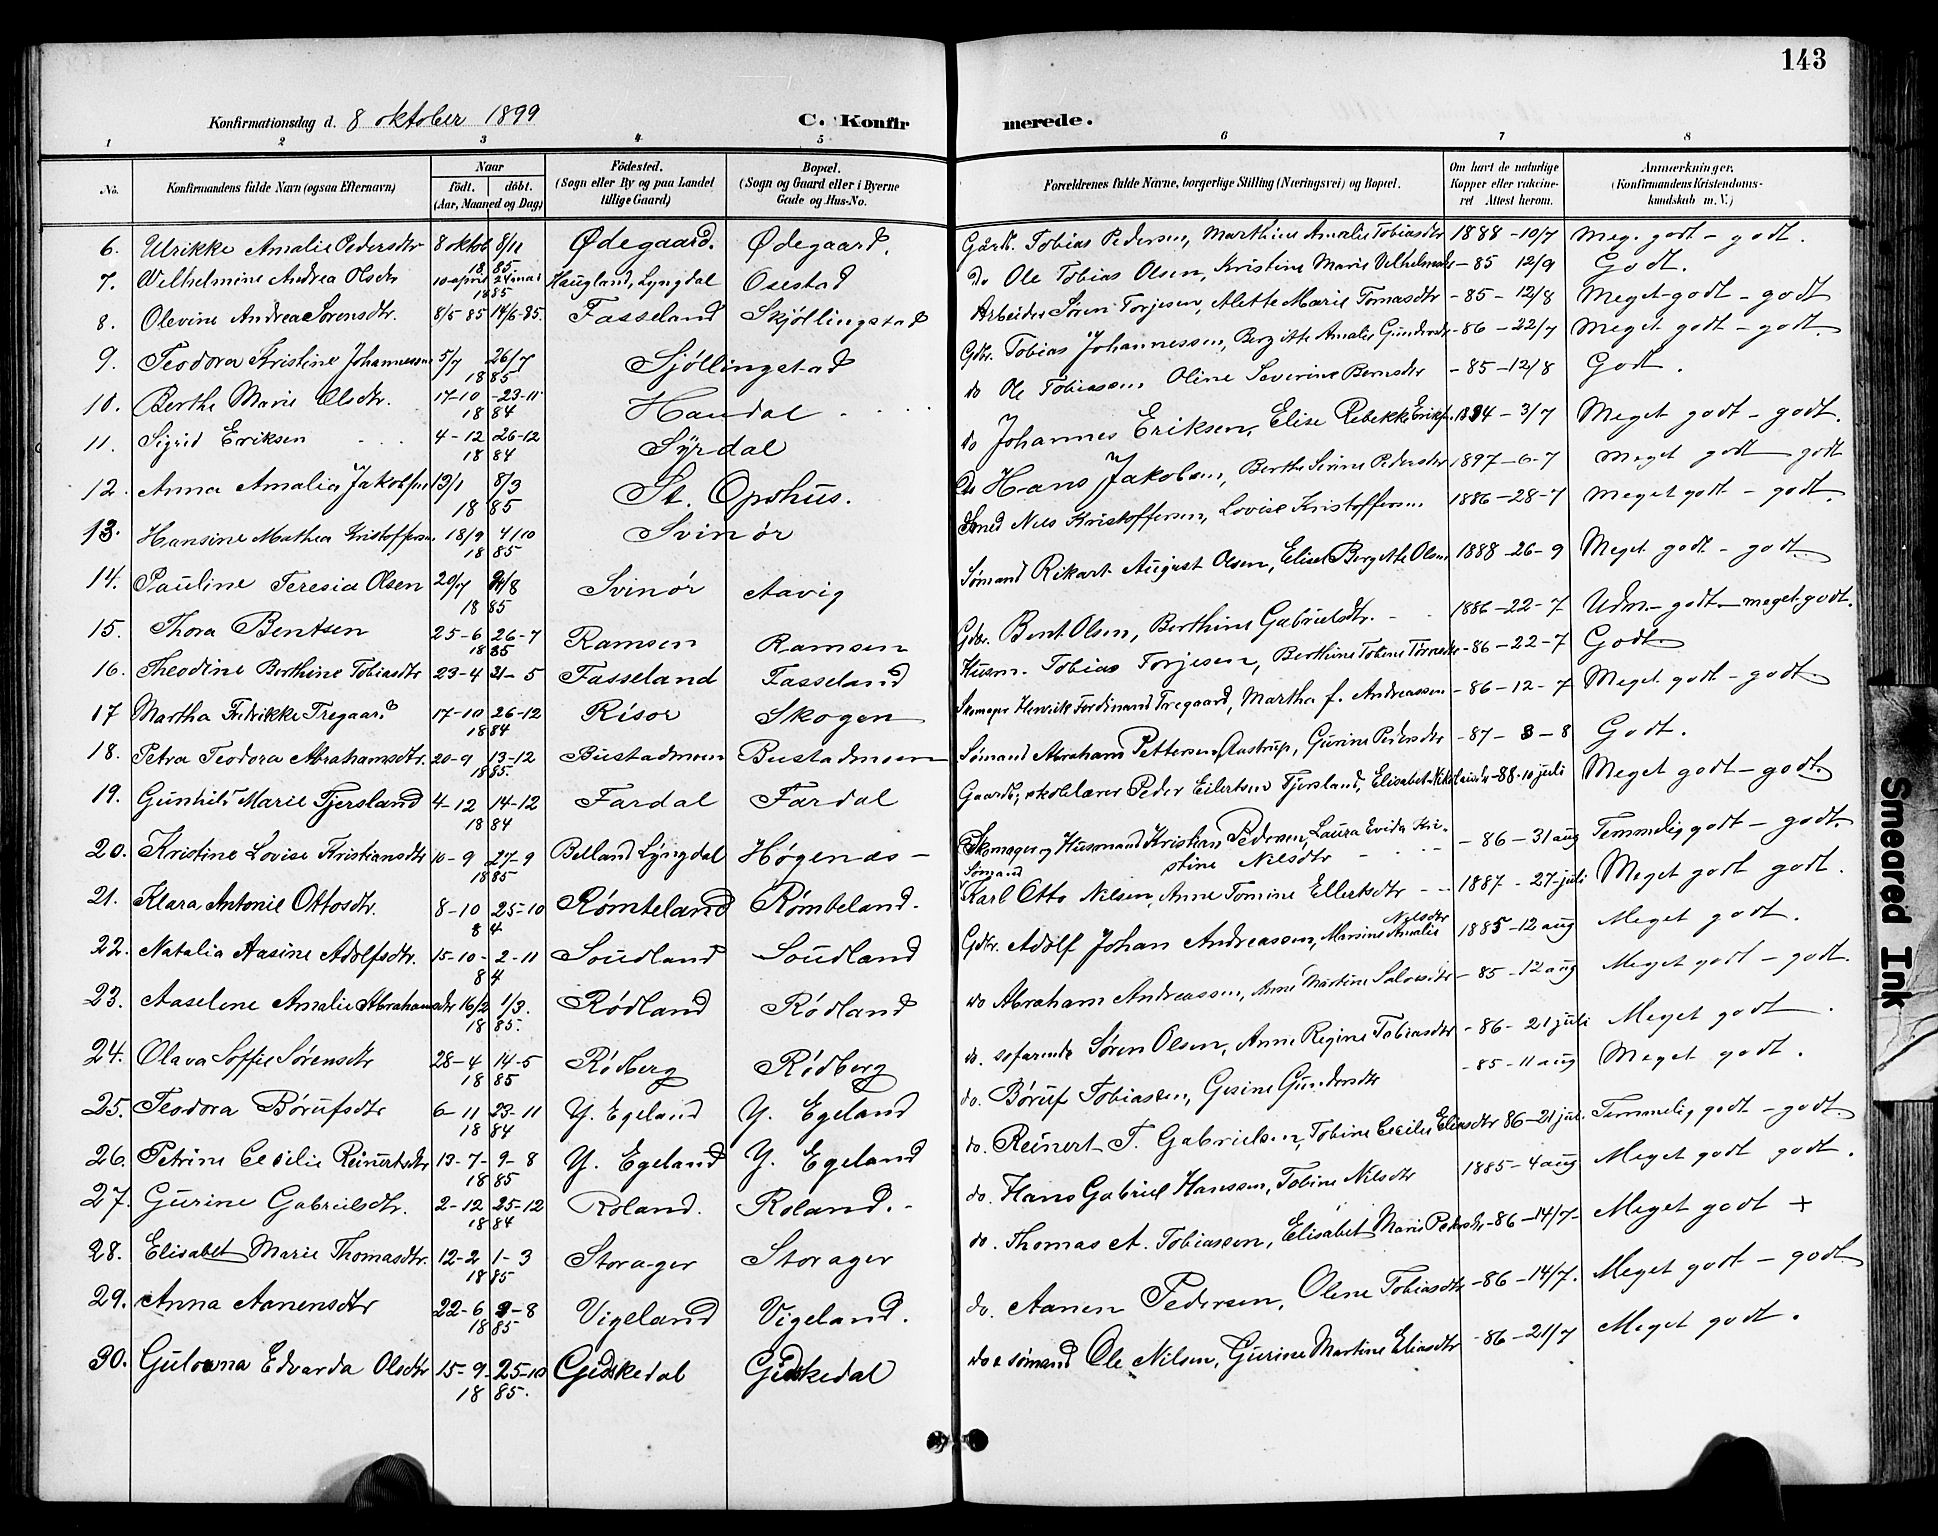 143
Konfirmationsdag d. 8 oktober 1899 C. Konfirmerede.
1 2 3 4 5 6 7 8
No. Konfirmandens fulde Navn (ogsaa Efternavn) Naar födt. döbt. (Aar, Maaned og Dag) Födested. (Sogn eller By og paa Landet tillige Gaard) Bopæl. (Sogn og Gaard eller i Byerne Gade og Hus-No. Forældrenes fulde Navne, borgerlige Stilling (Næringsvei) og Bopæl. Om havt de naturlige Kopper eller vakcineret Attest herom. Anmærkninger. (Konfirmandens Kristendomskundskab m. V.)
6. Ulrikke Amalie Pedersdtr 8 oktob 8/11 1885 Ødegaard. Ødegaard. Gårdb. Tobias Pedersen, Marthine Amalie Tobiasdtr 1888-10/7 Meg. godt - godt.
7. Wilhelmine Andrea Olsdtr 10 april 24 mai 1885 Haugland, Lyngdal Osestad do Ole Tobias Olsen, Kristine Marie Vilhelmsdtr - 85 12/9 Godt.
8. Olevine Andrea Sørensdtr. 8/5 85 14/6-85. Fasseland Skjøllingstad Arbeider Søren Torjesen, Alette Marie Tomasdtr - 85 - 12/8 Meget godt - godt
9. Teodora Kristine Johannessen 5/7 26/7 1885 Sjøllingstad Gdbr. Tobias Johannessen, Bergitte Amalie Gundersdtr - 86 - 22/7 Meget godt - godt.
10. Berthe Marie Olsdtr. 17-10 - 23-11 1884 Haudal do Ole Tobiassen Oline Severine Berntsdtr - 85 - 12/8 Godt.
11. Sigrid Eriksen 4-12 26-12 1884 Syrdal do Johannes Eriksen, Elise Rebekke Eriksen 1894 - 3/7 Meget godt - godt.
12. Anna Amalia Jakobsen 13/1 8/3 1885 St. Opshus. do Hans Jakobsen, Berthe Sirine Pedersdtr 1897-6-7 Meget godt godt
13. Hansine Mathea Kristoffersen 18/9 4/10 1885 Svinør Smed Nils Kristoffersen, Lovise Kristoffersen 1886-28-7 Meget godt - godt.
14. Pauline Teresia Olsen 20/7 /8 1885 Svinør Aavig Sømand Rikart August Olsen, Elise Bergitte Olsen 1888-26-9 Meget godt - godt.
15. Thora Bentsen 25-6 26-7 1885 Ramsen Ramsen Gdbr. Bent Olsen, Berthine Gabrielsdtr. 1886-22-7 Udm.- godt - meget godt.
16. Theodine Berthine Tobiasdtr 23-4 31-5 Fasseland Fasseland Husm. Tobias Torjesen, Berthine Tobine Tomasdtr - 86-22-7 Godt
17 Martha Fredrikke Tregaard 17-10 26-12 1884 Risør Skogen Skomager Henrik Ferdinand Tregaard, Martha f. Andreassen - 86-12-7 Meget godt - godt
18. Petra Teodora Abrahamsdtr. 20-9 13-12 1885. Bustadmoen Bustadmoen Sømand Abraham Pettersen Aastrup, Gurine Pedersdtr - 87-8-8 Godt.
19. Gunhild Marie Fjersland 4-12 14-12 1884 Fardal Fardal Gaardb., skolelærer Peder Eilertsen Fjersland, Elisabet Nikolaisdtr - 88-10 juli Meget godt - godt.
20. Kristine Lovise Kristiansdtr 10-9 27-9 1885 Belland Lyngdal Høgenas - Skomager og Husmand Kristian Pedersen, Laura Evida Kristine Nilsdtr - 86-31 aug Temmelig godt - godt.
21. Klara Antonie Ottosdtr. 8-10 25-10 84 Rømteland Rømteland. Sømand Karl Otto Nilsen, Anne Tomine Ellertsdtr 1887-27 juli Meget godt godt.
22. Natalia Aasine Adolfsdtr. 15-10 - 2-11 84 Soudland Soudland Gdbr. Adolf Johan Andreassen, Marsine Amalie Nilsdtr 1885-12 aug Meget godt.
23. Aaselene Amalie Abrahamsdtr 16/2 1/3. 1885. Rødland Rødland do Abraham Andreassen, Anne Martine Salvesdtr - 85-12 aug Meget godt - godt.
24. Olava Soffie Sørensdtr 28-4 14-5 1885 Rødberg Rødberg do. søfarende Søren Olsen, Anne Regine Tobiasdtr - 86-21 juli Meget godt.
25. Teodora Børufsdtr 6-11 23-11 1884 Y. Egeland Y. Egeland do. Børuf Tobiassen, Gesine Gundersdtr - 85-11 aug Meget godt.
26. Petrine Cecilie Reinertsdtr 13-7- 9-8 1885 Y. Egeland Y. Egeland do. Reinert T. Gabrielsen, Tobine Cecilie Eliasdtr 86-21 jul. Temmelig godt - godt.
27. Gurine Gabrielsdtr. 2-12 25-12 1884 Roland. Roland. do. Hans Gabriel Hanssen, Tobine Nilsdtr 1885-4 aug Meget godt godt.
28. Elisabet Marie Thomasdtr. 12-2 1-3 1885 Storager Storager do. Thomas A. Tobiassen, Elisabet Marie Pedersdtr - 86-14/7- Meget godt +
29. Anna Aanensdtr 22-6 9-8 1885 Vigeland Vigeland. do. Aanen Pedersen, Olene Tobiasdtr - 86-14/7. Meget godt - godt
30. Gulowna Edvarda Olsdtr 15-9- 25-10 1885. Gidskedal Gidskedal do & sømand Ole Nilsen, Gurine Martine Eliasdtr - 86-21/7 Meget godt.
Smeared Ink